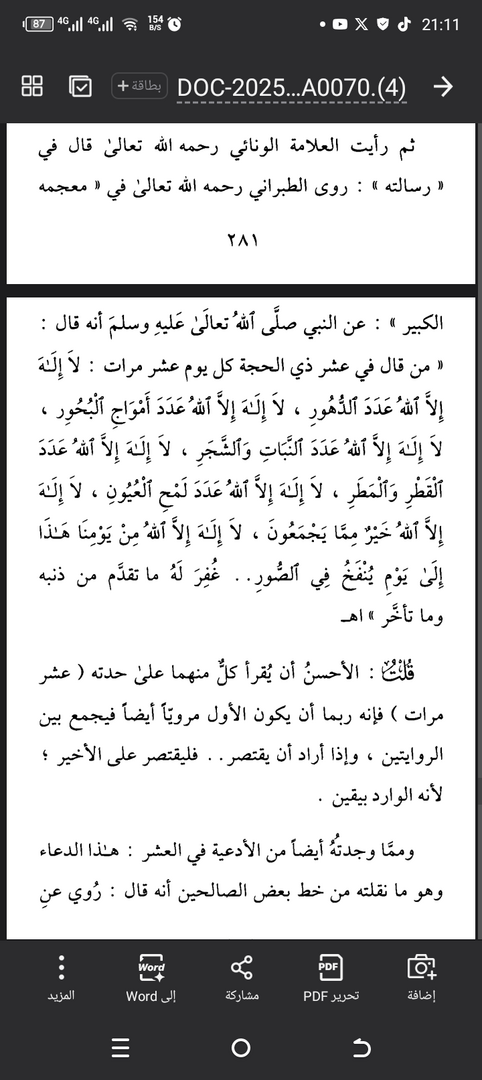 87 4G 4G 154 B/S 21:11
بطاقة+ DOC-2025...A0070.(4)
ثم رأيت العلامة الونائي رحمه الله تعالىٰ قال في
« رسالته » : روى الطبراني رحمه الله تعالىٰ في « معجمه
٢٨١
الكبير » : عن النبي صلَّى ٱللهُ تعالَىٰ عَليهِ وسلمَ أنه قال :
« من قال في عشر ذي الحجة كل يوم عشر مرات : لاَ إِلَـٰهَ
إِلاَّ ٱللهُ عَدَدَ ٱلدُّهُورِ ، لاَ إِلَـٰهَ إِلاَّ ٱللهُ عَدَدَ أَمْوَاجِ ٱلْبُحُورِ ،
لاَ إِلَـٰهَ إِلاَّ ٱللهُ عَدَدَ ٱلنَّبَاتِ وَٱلشَّجَرِ ، لاَ إِلَـٰهَ إِلاَّ ٱللهُ عَدَدَ
ٱلْقَطْرِ وَٱلْمَطَرِ ، لاَ إِلَـٰهَ إِلاَّ ٱللهُ عَدَدَ لَمْحِ ٱلْعُيُونِ ، لاَ إِلَـٰهَ
إِلاَّ ٱللهُ خَيْرٌ مِمَّا يَجْمَعُونَ ، لاَ إِلَـٰهَ إِلاَّ ٱللهُ مِنْ يَوْمِنَا هَـٰذَا
إِلَىٰ يَوْمِ يُنْفَخُ فِي ٱلصُّورِ. . غُفِرَ لَهُ ما تقدَّم من ذنبه
وما تأخَّر » اهـ
قُلْتُ : الأحسنُ أن يُقرأ كلٌّ منهما علىٰ حدته ( عشر
مرات ) فإنه ربما أن يكون الأول مرويّاً أيضاً فيجمع بين
الروايتين ، وإذا أراد أن يقتصر . . فليقتصر على الأخير ؛
لأنه الوارد بيقين .
وممَّا وجدتُهُ أيضاً من الأدعية في العشر : هـٰذا الدعاء
وهو ما نقلته من خط بعض الصالحين أنه قال : رُوي عنِ
إضافة تحرير PDF مشاركة إلى Word المزيد